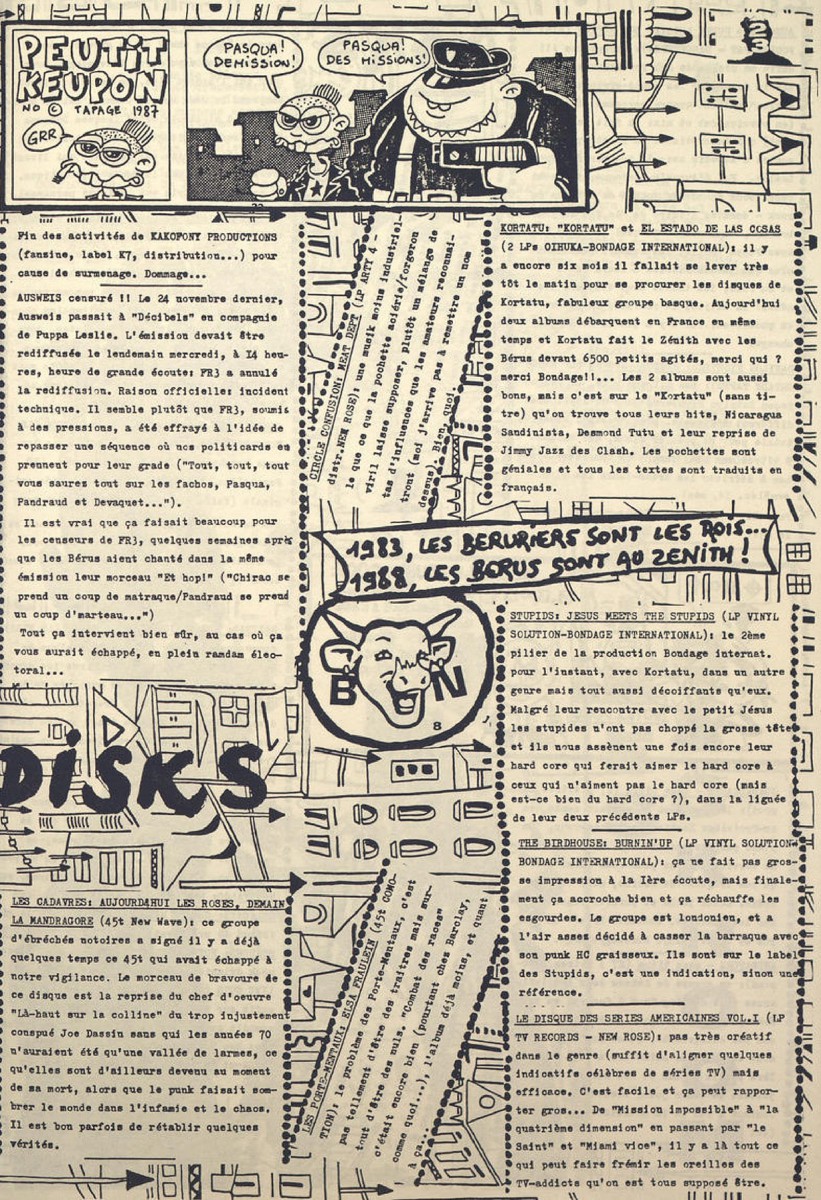 PEUTIT
KEUPON
NO © TAPAGE 1987
GRR
PASQUA!
DEMISSION!
PASQUA!
DES MISSIONS!
23
Fin des activités de KAKOFONY PRODUCTIONS
(fansine, label K7, distribution...) pour
cause de surmenage. Dommage...
AUSWEIS censuré !! Le 24 novembre dernier,
Ausweis passait à "Décibels" en compagnie
de Puppa Leslie. L'émission devait être
rediffusée le lendemain mercredi, à I4 heu-
res, heure de grande écoute: FR3 a annulé
la rediffusion. Raison officielle: incident
technique. Il semble plutôt que FR3, soumis
à des pressions, a été effrayé à l'idée de
repasser une séquence où nos politicards en
prennent pour leur grade ("Tout, tout, tout
vous saures tout sur les fachos, Pasqua,
Pandraud et Devaquet...").
Il est vrai que ça faisait beaucoup pour
les censeurs de FR3, quelques semaines après
que les Bérus aient chanté dans la même
émission leur morceau "Et hop!" ("Chirac se
prend un coup de matraque/Pandraud se prend
un coup d'marteau...")
Tout ça intervient bien sûr, au cas où ça
vous aurait échappé, en plein ramdam élec-
toral...
DISKS
LES CADAVRES: AUJOURD4HUI LES ROSES, DEMAIN
LA MANDRAGORE (45t New Wave): ce groupe
d'ébréchés notoires a signé il y a déjà
quelques temps ce 45t qui avait échappé à
notre vigilance. Le morceau de bravoure de
ce disque est la reprise du chef d'oeuvre
"Là-haut sur la colline" du trop injustement
conspué Joe Dassin sans qui les années 70
n'auraient été qu'une vallée de larmes, ce
qu'elles sont d'ailleurs devenu au moment
de sa mort, alors que le punk faisait som-
brer le monde dans l'infamie et le chaos.
Il est bon parfois de rétablir quelques
vérités.
CIRCLE CONFUSION: MEAT DEPT (LP ARTY 4 -
distr.NEW ROSE): une musik moins industriel-
le que ce que la pochette aciérie/forgeron
viril laisse supposer, plutôt un mélange de
tas d'influences que les amateurs reconnai-
tront (moi j'arrive pas à remettre un nom
dessus). Bien, quoi.
1983, LES BERURIERS SONT LES ROIS...
1988, LES BERUS SONT AU ZENITH!
B N
8
LES PORTE-MENTAUX: ELSA FRAULEIN (45t COMO-
TION): le problème des Porte-Mentaux, c'est
pas tellement d'être des traitres mais sur-
tout d'être des nuls. "Combat des races"
c'était encore bien (pourtant chez Barclay,
comme quoi...), l'album déjà moins, et quant
à ça...
KORTATU: "KORTATU" et EL ESTADO DE LAS COSAS
(2 LPs OIHUKA-BONDAGE INTERNATIONAL): il y
a encore six mois il fallait se lever très
tôt le matin pour se procurer les disques de
Kortatu, fabuleux groupe basque. Aujourd'hui
deux albums débarquent en France en même
temps et Kortatu fait le Zénith avec les
Bérus devant 6500 petits agités, merci qui ?
merci Bondage!!... Les 2 albums sont aussi
bons, mais c'est sur le "Kortatu" (sans ti-
tre) qu'on trouve tous leurs hits, Nicaragua
Sandinista, Desmond Tutu et leur reprise de
Jimmy Jazz des Clash. Les pochettes sont
géniales et tous les textes sont traduits en
français.
STUPIDS: JESUS MEETS THE STUPIDS (LP VINYL
SOLUTION-BONDAGE INTERNATIONAL): le 2ème
pilier de la production Bondage internat.
pour l'instant, avec Kortatu, dans un autre
genre mais tout aussi décoiffants qu'eux.
Malgré leur rencontre avec le petit Jésus
les stupides n'ont pas choppé la grosse tête
et ils nous assènent une fois encore leur
hard core qui ferait aimer le hard core à
ceux qui n'aiment pas le hard core (mais
est-ce bien du hard core ?), dans la lignée
de leur deux précédents LPs.
THE BIRDHOUSE: BURNIN'UP (LP VINYL SOLUTION-
BONDAGE INTERNATIONAL): ça ne fait pas gros-
se impression à la Ière écoute, mais finale-
ment ça accroche bien et ça réchauffe les
esgourdes. Le groupe est londonien, et a
l'air asses décidé à casser la barraque avec
son punk HC graisseux. Ils sont sur le label
des Stupids, c'est une indication, sinon une
référence.
LE DISQUE DES SERIES AMERICAINES VOL.I (LP
TV RECORDS - NEW ROSE): pas très créatif
dans le genre (suffit d'aligner quelques
indicatifs célèbres de séries TV) mais
efficace. C'est facile et ça peut rappor-
ter gros... De "Mission impossible" à "la
quatrième dimension" en passant par "le
Saint" et "Miami vice", il y a là tout ce
qui peut faire frémir les oreilles des
TV-addicts qu'on est tous supposé être.